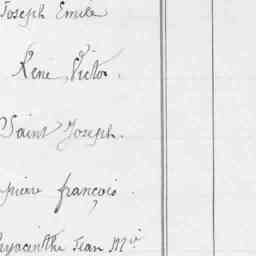 Joseph Emile
René Victor.
Saint Joseph.
pierre françois
hyacinthe Jean M<sup>ie</sup>